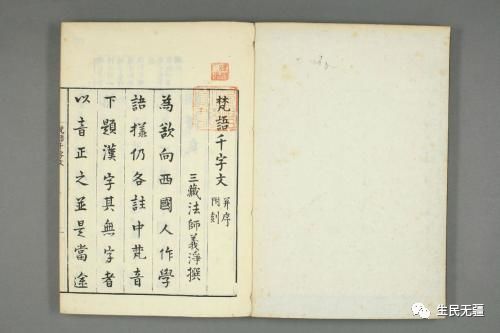 梵語千字文 并序
三藏法師義淨撰
為欲向西國人作學
語樣仍各註中梵音
下題漢字其無字者
以音正之並是當途
生民无疆